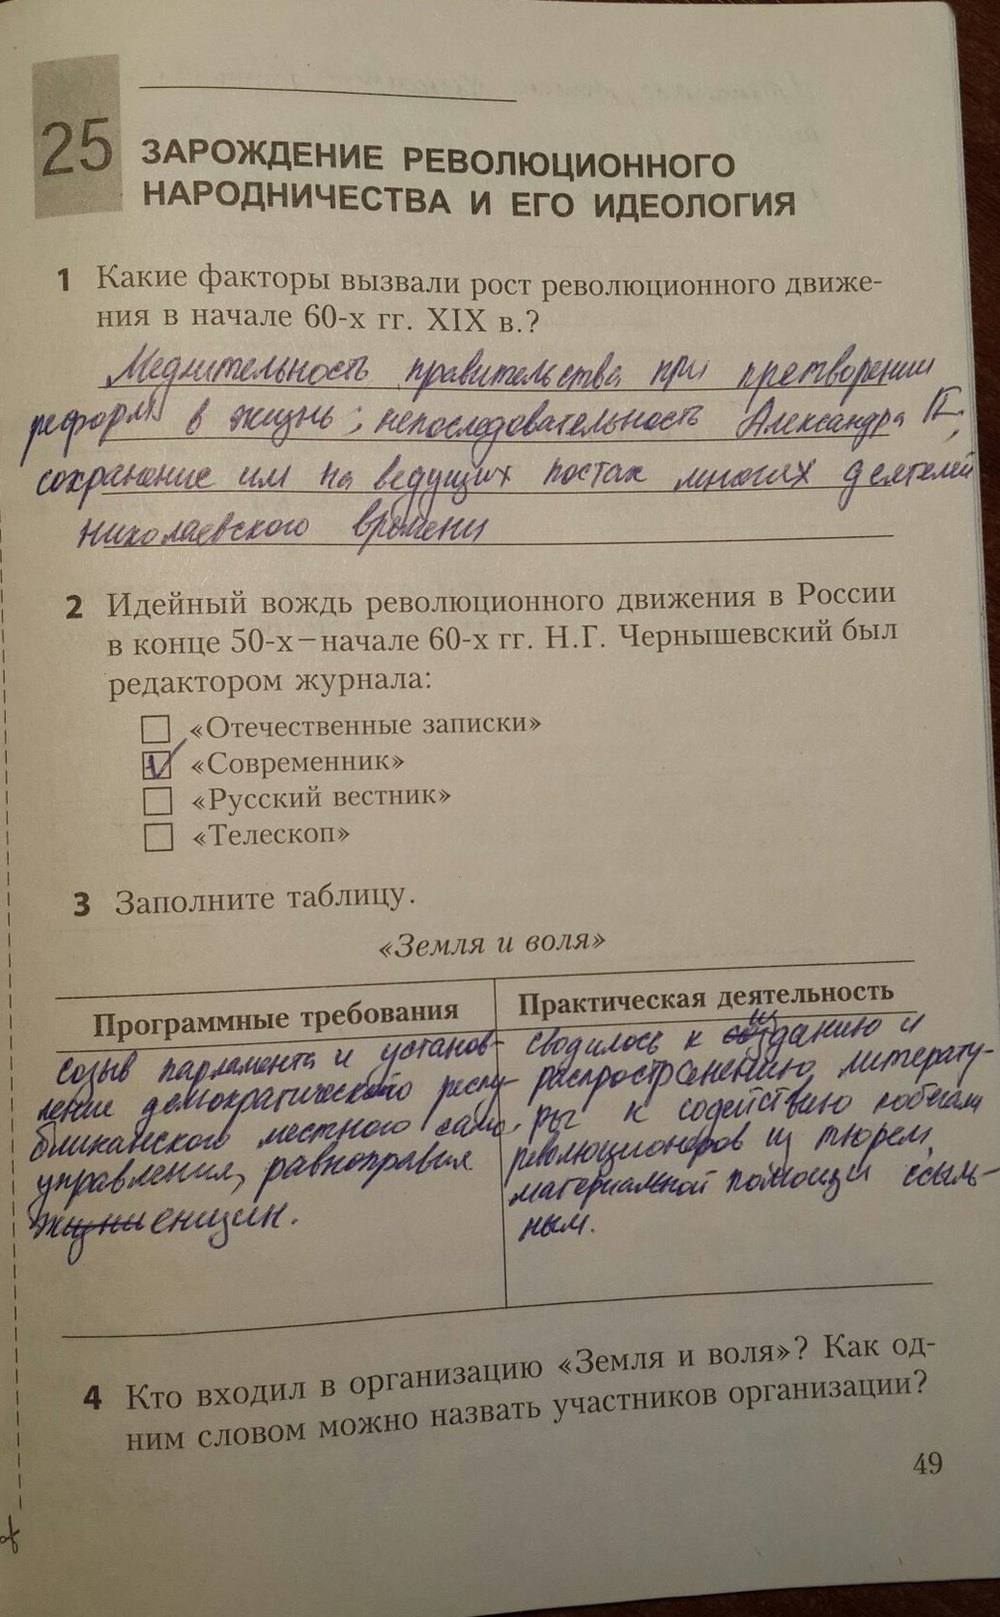 25
ЗАРОЖДЕНИЕ РЕВОЛЮЦИОННОГО
НАРОДНИЧЕСТВА И ЕГО ИДЕОЛОГИЯ
1 Какие факторы вызвали рост революционного движе-
ния в начале 60-х гг. XIX в.?
Медлительность правительства при претворении
реформ в жизнь; непоследовательность Александра II,
сохранение им на ведущих постах многих деятелей
николаевского времени
2 Идейный вождь революционного движения в России
в конце 50-х – начале 60-х гг. Н.Г. Чернышевский был
редактором журнала:
«Отечественные записки»
«Современник»
«Русский вестник»
«Телескоп»
3 Заполните таблицу.
«Земля и воля»
Программные требования
созыв парламента и установ-
ление демократического респу-
бликанского местного само-
управления, равноправия
женщин.
Практическая деятельность
сводилось к изданию и
распространению литерату-
ры к содействию побегам
революционеров из тюрем,
материальной помощи ссыль-
ным.
4 Кто входил в организацию «Земля и воля»? Как од-
ним словом можно назвать участников организации?
49